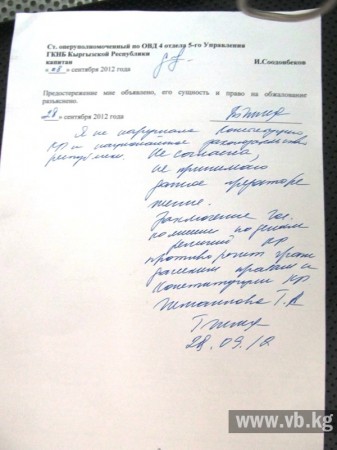 Ст. оперуполномоченный по ОВД 4 отдела 5-го Управления
ГКНБ Кыргызской Республики
капитан И.Соодонбеков
«28» сентября 2012 года
Предостережение мне объявлено, его сущность и право на обжалование
разъяснено.
«28» сентября 2012 года
Я не нарушала Конституцию
КР и национальное законодательство
республики.
Не согласна,
не принимаю
данное предосторе
жение.
Заключение Гос.
комиссии по делам
религий КР
противоречит граж
данским правам и
Конституции КР
Т.А
28.09.12
www.vb.kg